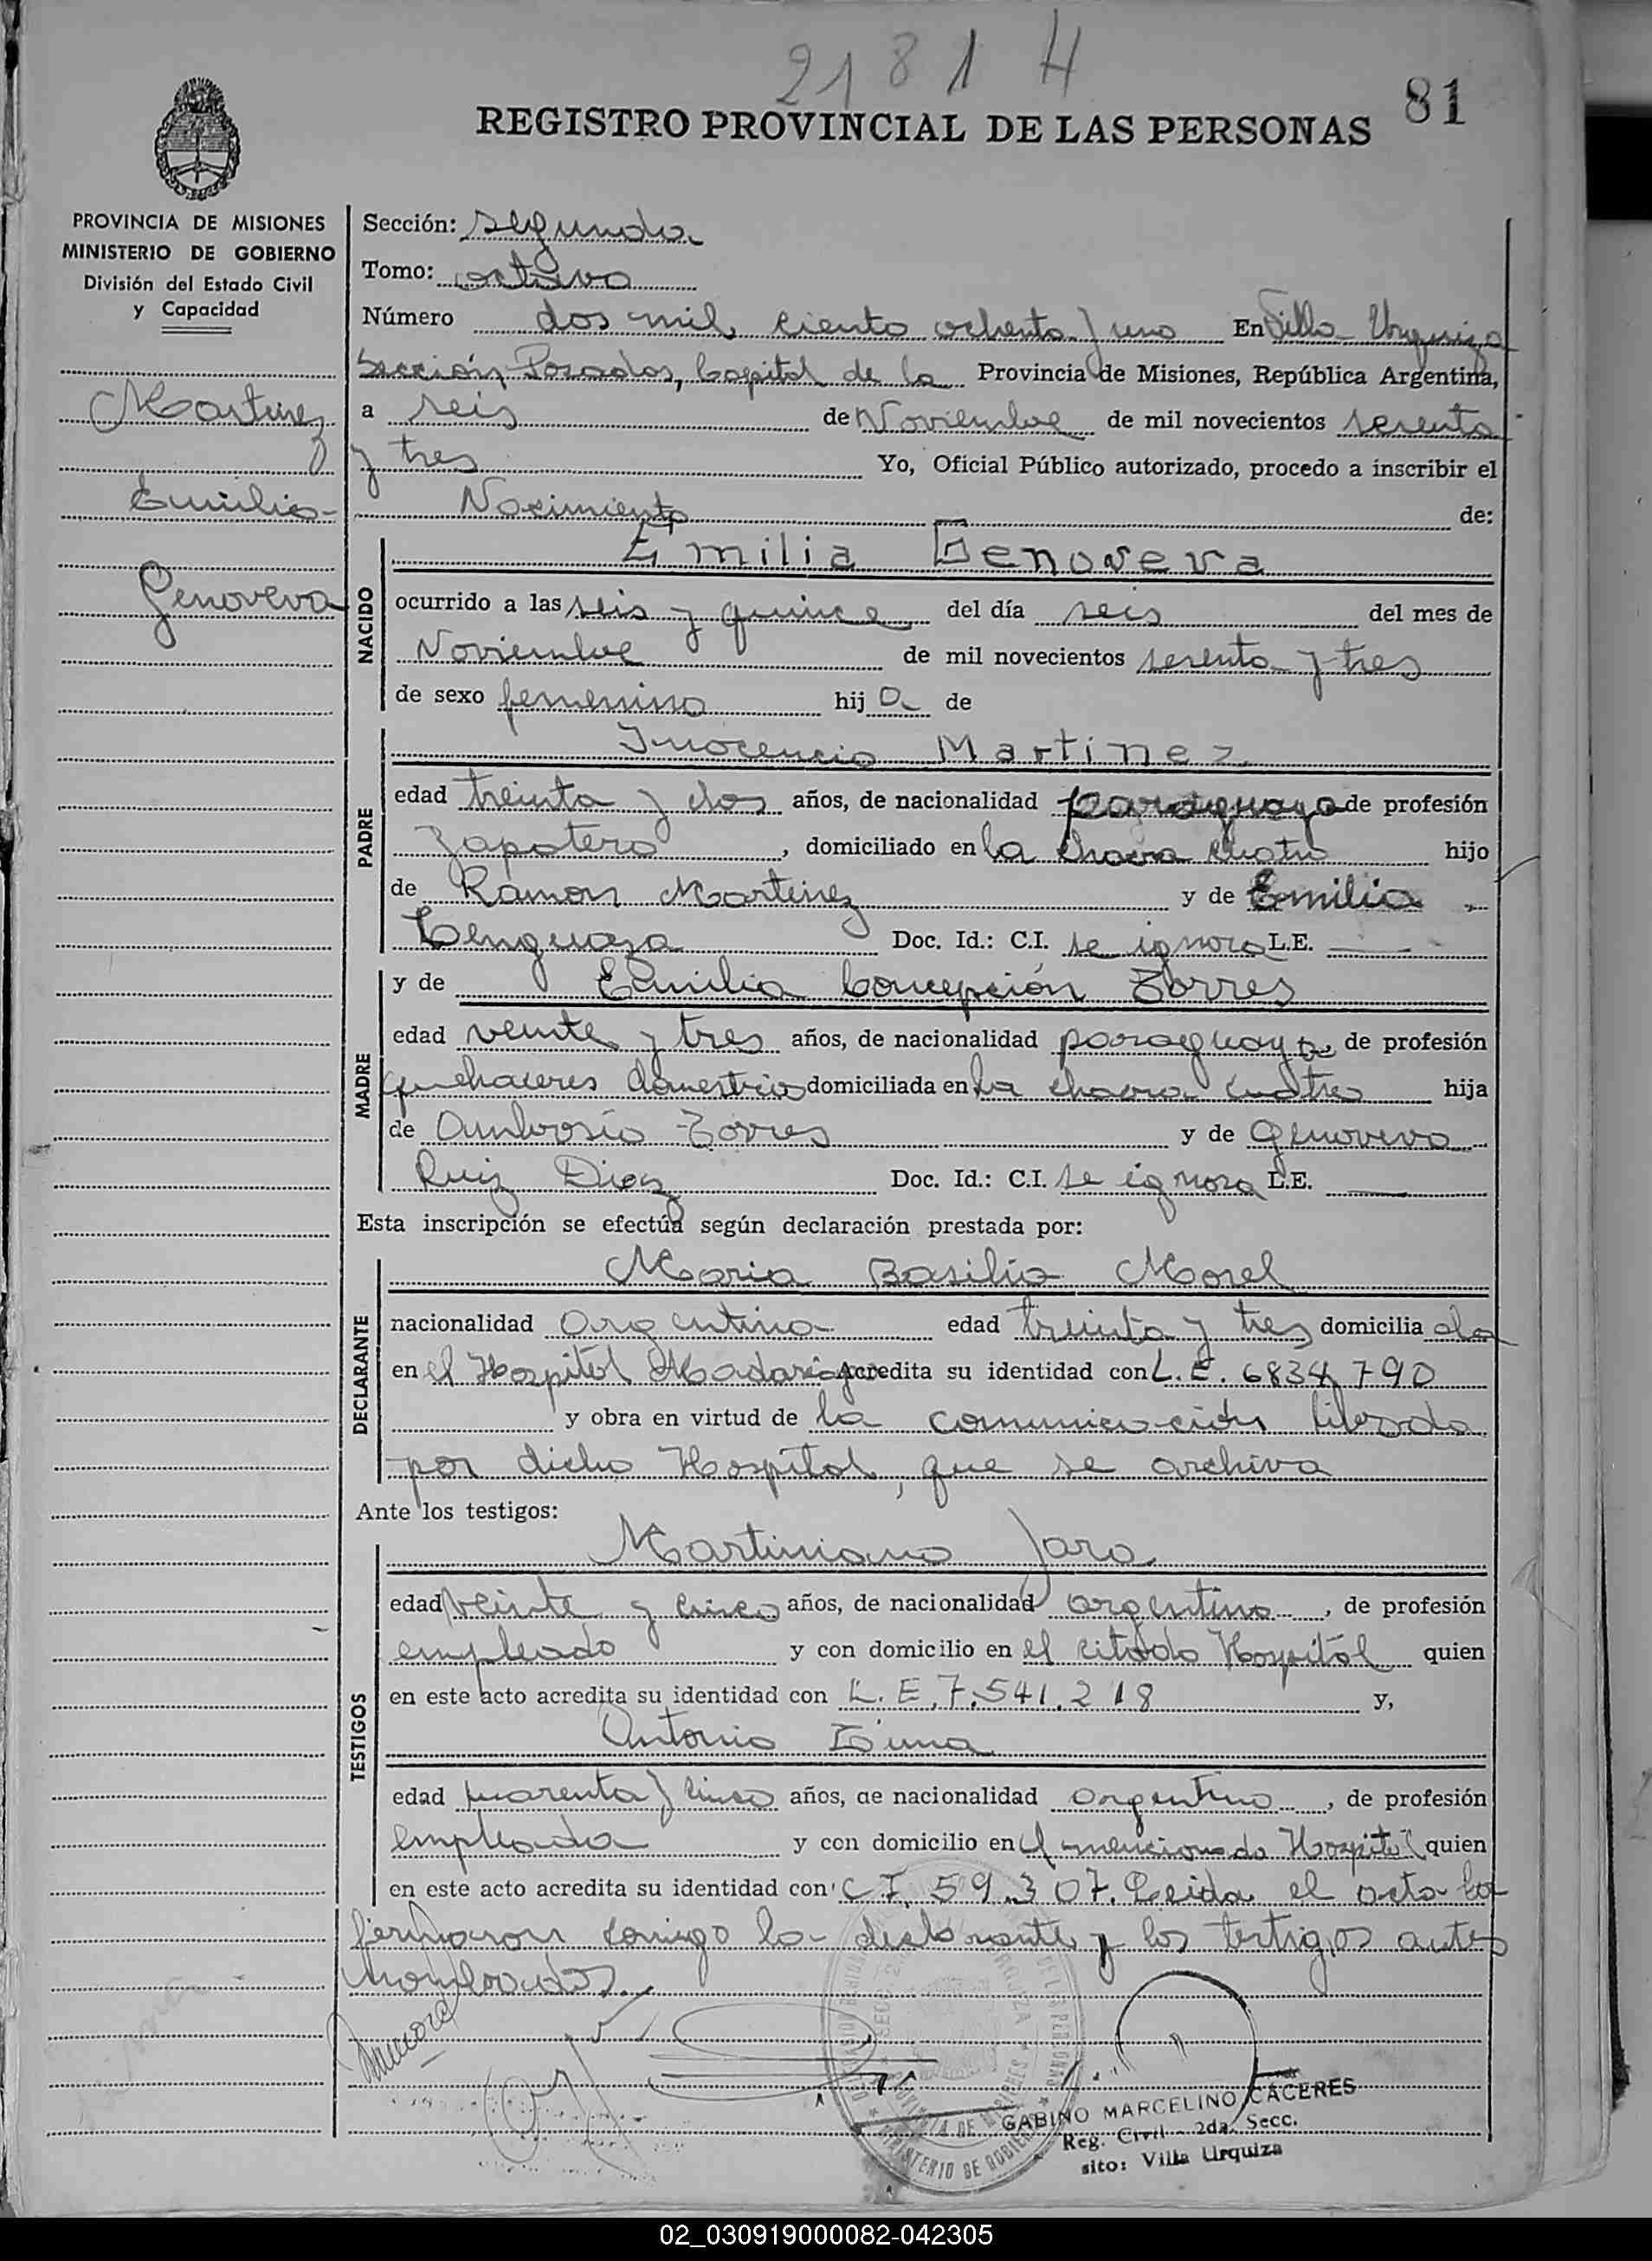 2181 H
81
REGISTRO PROVINCIAL DE LAS PERSONAS
PROVINCIA DE MISIONES
MINISTERIO DE GOBIERNO
División del Estado Civil
y Capacidad
Martinez
Emilia
Genoveva
Sección: segunda
Tomo: octavo
Número dos mil ciento ochenta y uno En Villa Urquiza
Sección Posadas, Capital de la Provincia de Misiones, República Argentina,
a seis de Noviembre de mil novecientos sesenta
y tres Yo, Oficial Público autorizado, procedo a inscribir el
Nacimiento de:
NACIDO
Emilia Genoveva
ocurrido a las seis y quince del día seis del mes de
Noviembre de mil novecientos sesenta y tres
de sexo femenino hija de
PADRE
Inocencio Martinez
edad treinta y dos años, de nacionalidad paraguaya de profesión
zapatero, domiciliado en la chacra cuatro hijo
de Ramon Martinez y de Emilia
Doc. Id.: C.I. se ignora L.E.
MADRE
y de Emilia Concepción Torres
edad veinte y tres años, de nacionalidad paraguaya, de profesión
quehaceres domestico domiciliada en la chacra cuatro hija
de Ambrosio Torres y de Genoveva
Ruiz Diaz Doc. Id.: C.I. se ignora L.E.
Esta inscripción se efectúa según declaración prestada por:
DECLARANTE
Maria Basilia Morel
nacionalidad Argentina edad treinta y tres domicilia da
en el Hospital Madariaga Acredita su identidad con L.E. 6834790
y obra en virtud de la comunicación librada
por dicho Hospital, que se archiva
Ante los testigos:
TESTIGOS
Martiniano Jara
edad veinte y cinco años, de nacionalidad argentino, de profesión
empleado y con domicilio en el citado Hospital quien
en este acto acredita su identidad con L.E. 7.541.218 y,
Antonio
edad cuarenta y cinco años, de nacionalidad argentino, de profesión
empleado y con domicilio en el mencionado Hospital quien
en este acto acredita su identidad con C.I. 59.307. Leida el acta la
firmaron conmigo la declarante y los testigos antes
nombrados.
GABINO MARCELINO CACERES
Reg. Civil - 2da. Secc.
sito: Villa Urquiza
02_030919000082-042305